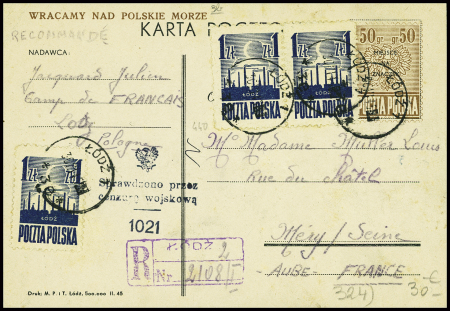 WRACAMY NAD POLSKIE MORZE
RECOMMANDÉ
KARTA POCZTO
NADAWCA:
Jacquard Julien
Camp de FRANÇAIS
Lodz
Pologne
1 ZŁ 1
ŁÓDŹ
POCZTA POLSKA
1 ZŁ 1
ŁÓDŹ
POCZTA POLSKA
50 gr 50
POCZTA POLSKA
ŁÓDŹ 1
M. Madame Muller Louis
Rue du Châtel
Méry / Seine
- AUBE - FRANCE
324)
30 €
1 ZŁ 1
ŁÓDŹ
POCZTA POLSKA
ŁÓDŹ
Sprawdzono przez
cenzurę wojskową
1021
R
ŁÓDŹ 2
Nr. 2108/I
Druk: M. P. i T. Łódź,
II. 45